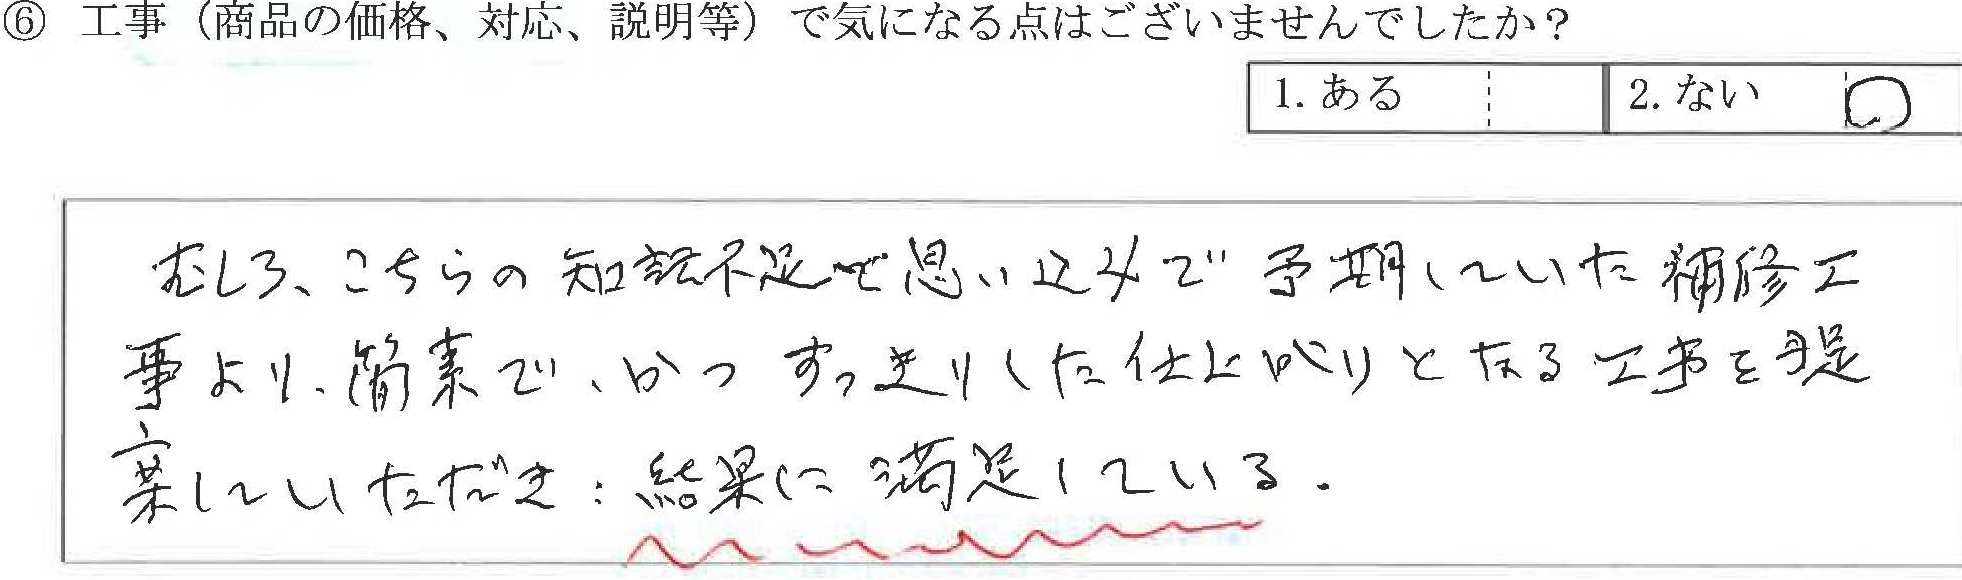 ⑥ 工事（商品の価格、対応、説明等）で気になる点はございませんでしたか？
1. ある 2. ない ○
むしろ、こちらの知識不足で思い込みで予期していた補修工
事より、簡素で、かつすっきりした仕上がりとなる工事を提
案していただき、結果に満足している.